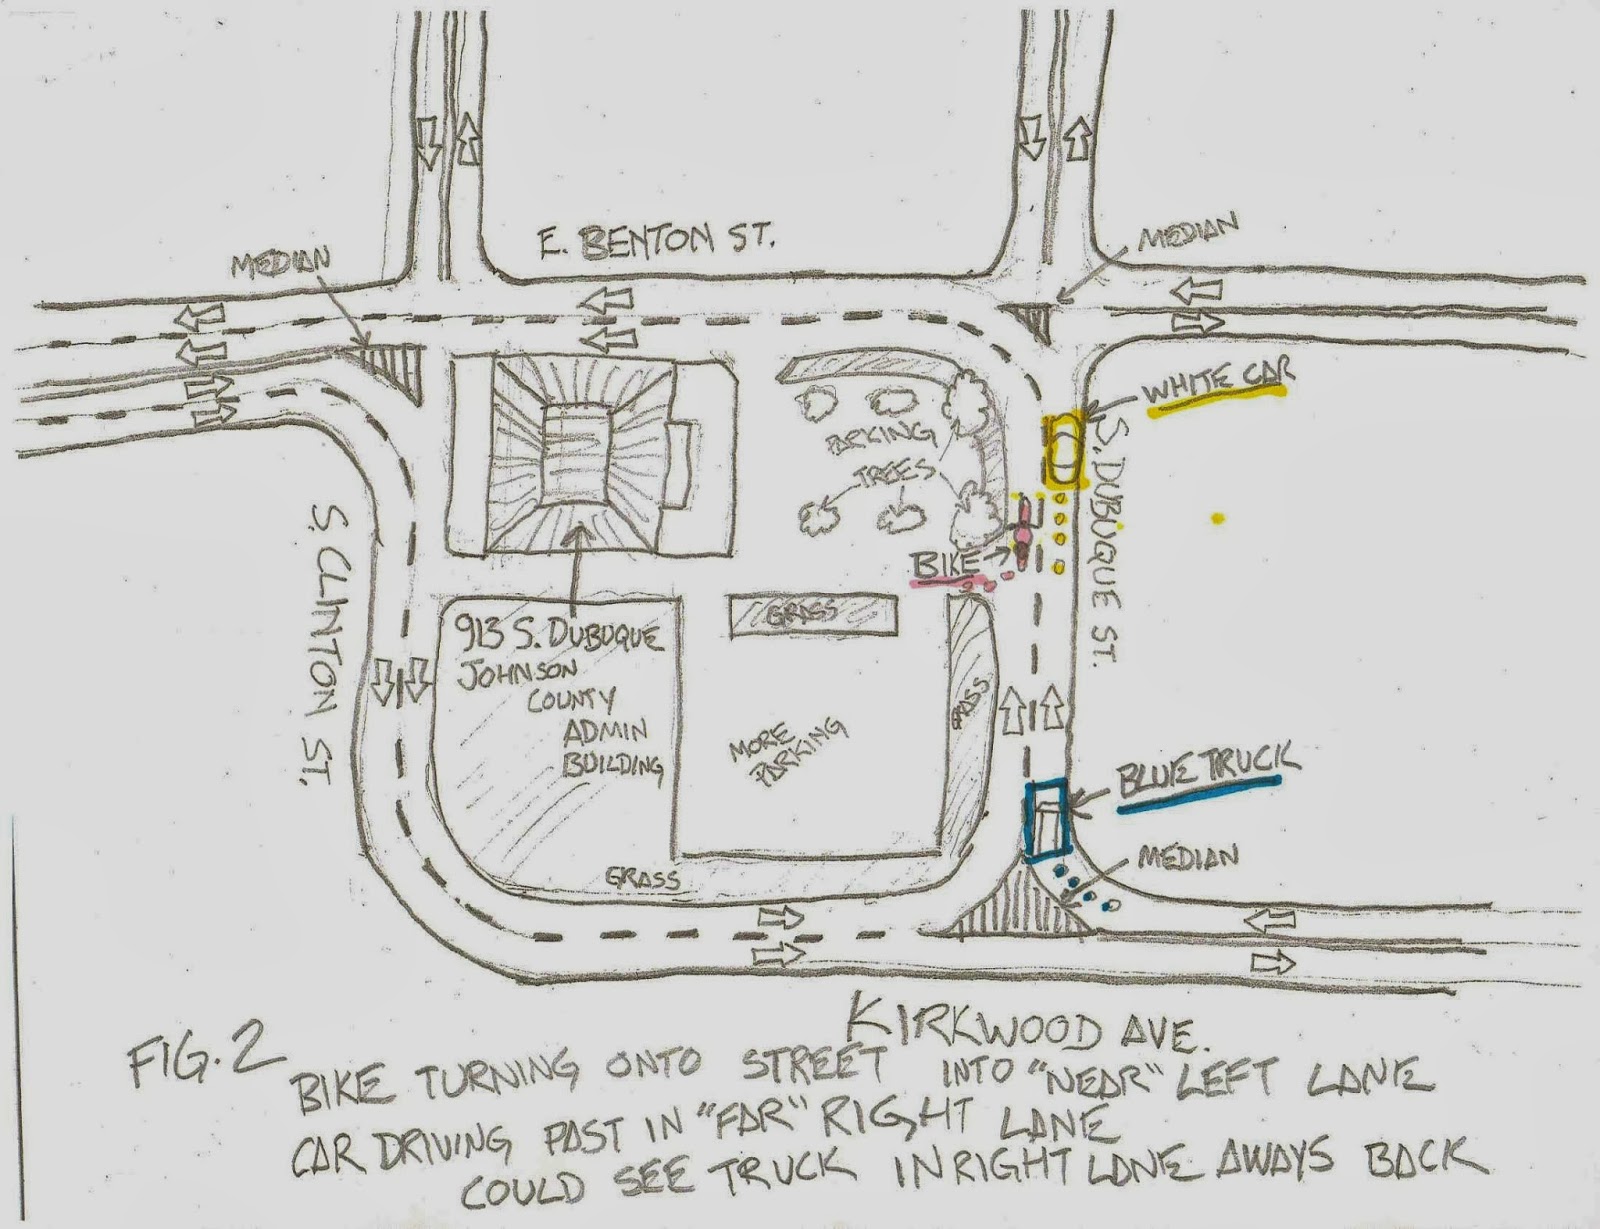 E. BENTON ST.
MEDIAN
MEDIAN
WHITE CAR
PARKING
TREES
S. DUBUQUE ST.
BIKE
S. CLINTON ST.
913 S. DUBUQUE
JOHNSON
COUNTY
ADMIN
BUILDING
GRASS
GRASS
MORE
PARKING
BLUE TRUCK
MEDIAN
GRASS
KIRKWOOD AVE.
FIG. 2
BIKE TURNING ONTO STREET INTO "NEAR" LEFT LANE
CAR DRIVING PAST IN "FAR" RIGHT LANE
COULD SEE TRUCK IN RIGHT LANE AWAYS BACK